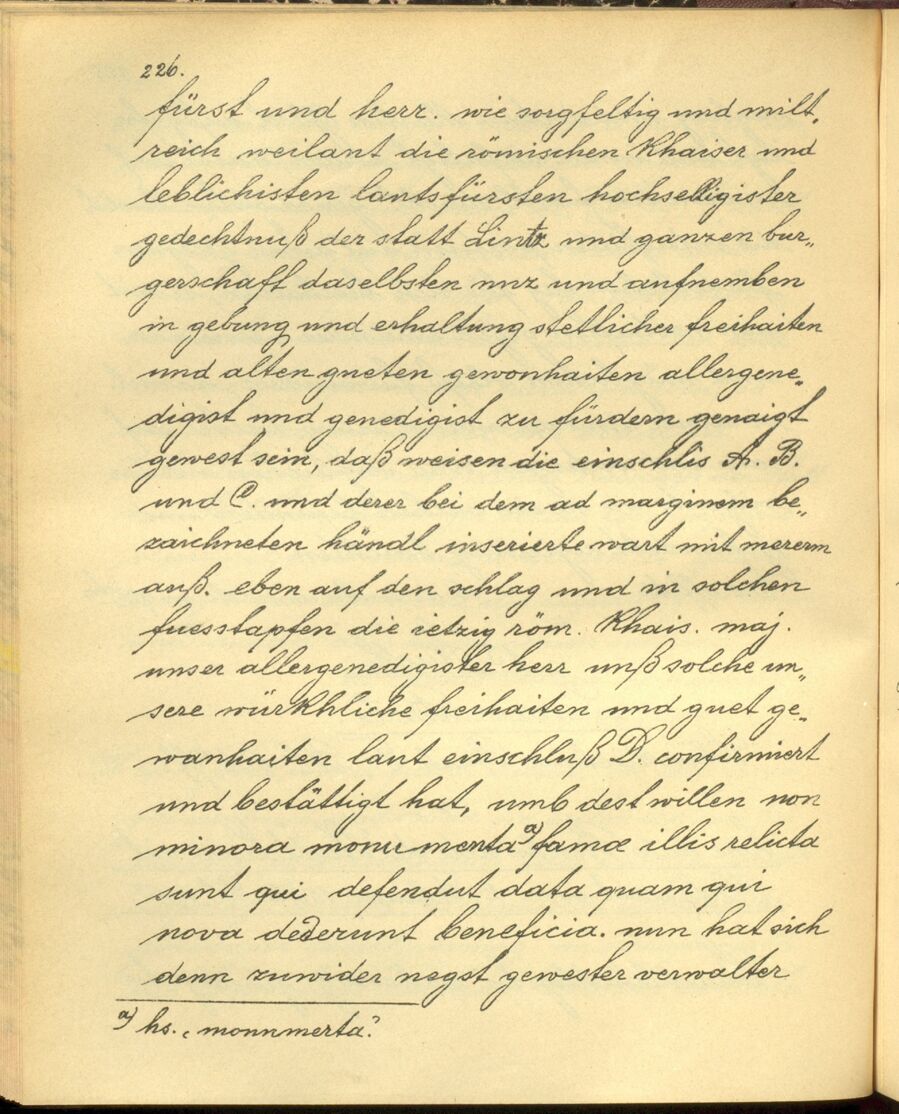 226.
fürst und herr. wie sorgfeltig und milt„
reich weilant die römischen Khaiser und
leblichisten lantsfürsten hochselligister
gedechtnuß der statt Lintz und ganzen bur„
gerschaft daselbsten nuz und aufnemben
in gebung und erhaltung stetlicher freihaiten
und alten gueten gewonhaiten allergene„
digist und genedigist zu fürdern genaigt
gewest sein, daß weisen die einschlis A. B.
und C. und derer bei dem ad marginem be„
zaichneten händl inserierte wart mit mererm
auß. eben auf den schlag und in solchen
fuesstapfen die ietzig röm. Khais. maj.
unser allergenedigister herr unß solche un„
sere würkhliche freihaiten und guet ge„
wanhaiten laut einschluß D. confirmiert
und bestättigt hat, umb dest willen non
minora monumenta a) famae illis relicta
sunt qui defendut data quam qui
nova dederunt beneficia. nun hat sich
denn zuwider negst gewester verwalter
a) hs. „monnmerta."